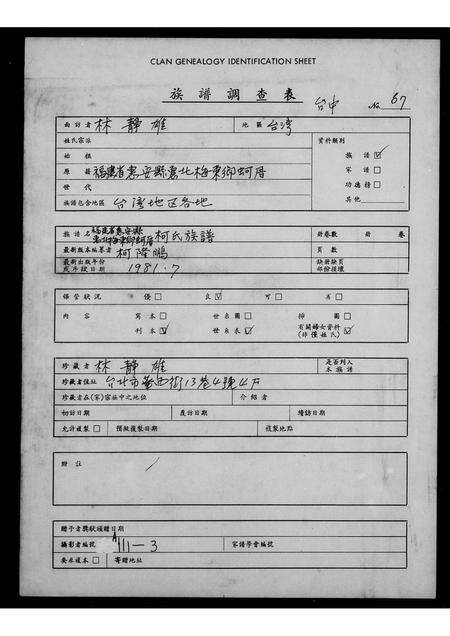 CLAN GENEALOGY IDENTIFICATION SHEET
族譜調查表 台中 No 67
面訪者 林靜雄 地區 台湾
姓氏宗派 資料類別
始祖 族譜 ☑
原籍 福建省惠安縣惠北梅東鄉蚵厝 家譜 □
世代 功德榜 □
族譜包含地區 台湾地区各地 其他
族譜名 福建省惠安縣惠北梅東鄉蚵厝柯氏族譜 冊卷數 冊 卷
最新版本編著者 柯隆鵬 頁數
最新出版年份或序跋日期 1981.7 缺號缺頁部份損壞
保管狀況 優 □ 良 ☑ 可 □ 其 □
內容 寫本 □ 世系圖 □ 排圖 □
刊本 ☑ 世系表 ☑ 有關婦女資料(非僅姓氏) ☑
珍藏者 林靜雄 是否列入本族譜
珍藏者住址 台北市 街13巷4號4F
珍藏者在(家)宗族中之地位 介紹者
初訪日期 覆訪日期 續訪日期
允許複製 □ 預擬複製日期 複製地點
附註
贈予者獎狀頒贈日期
攝影者編號 A111-3 家譜學會編號
要求複本 □ 寄贈地址